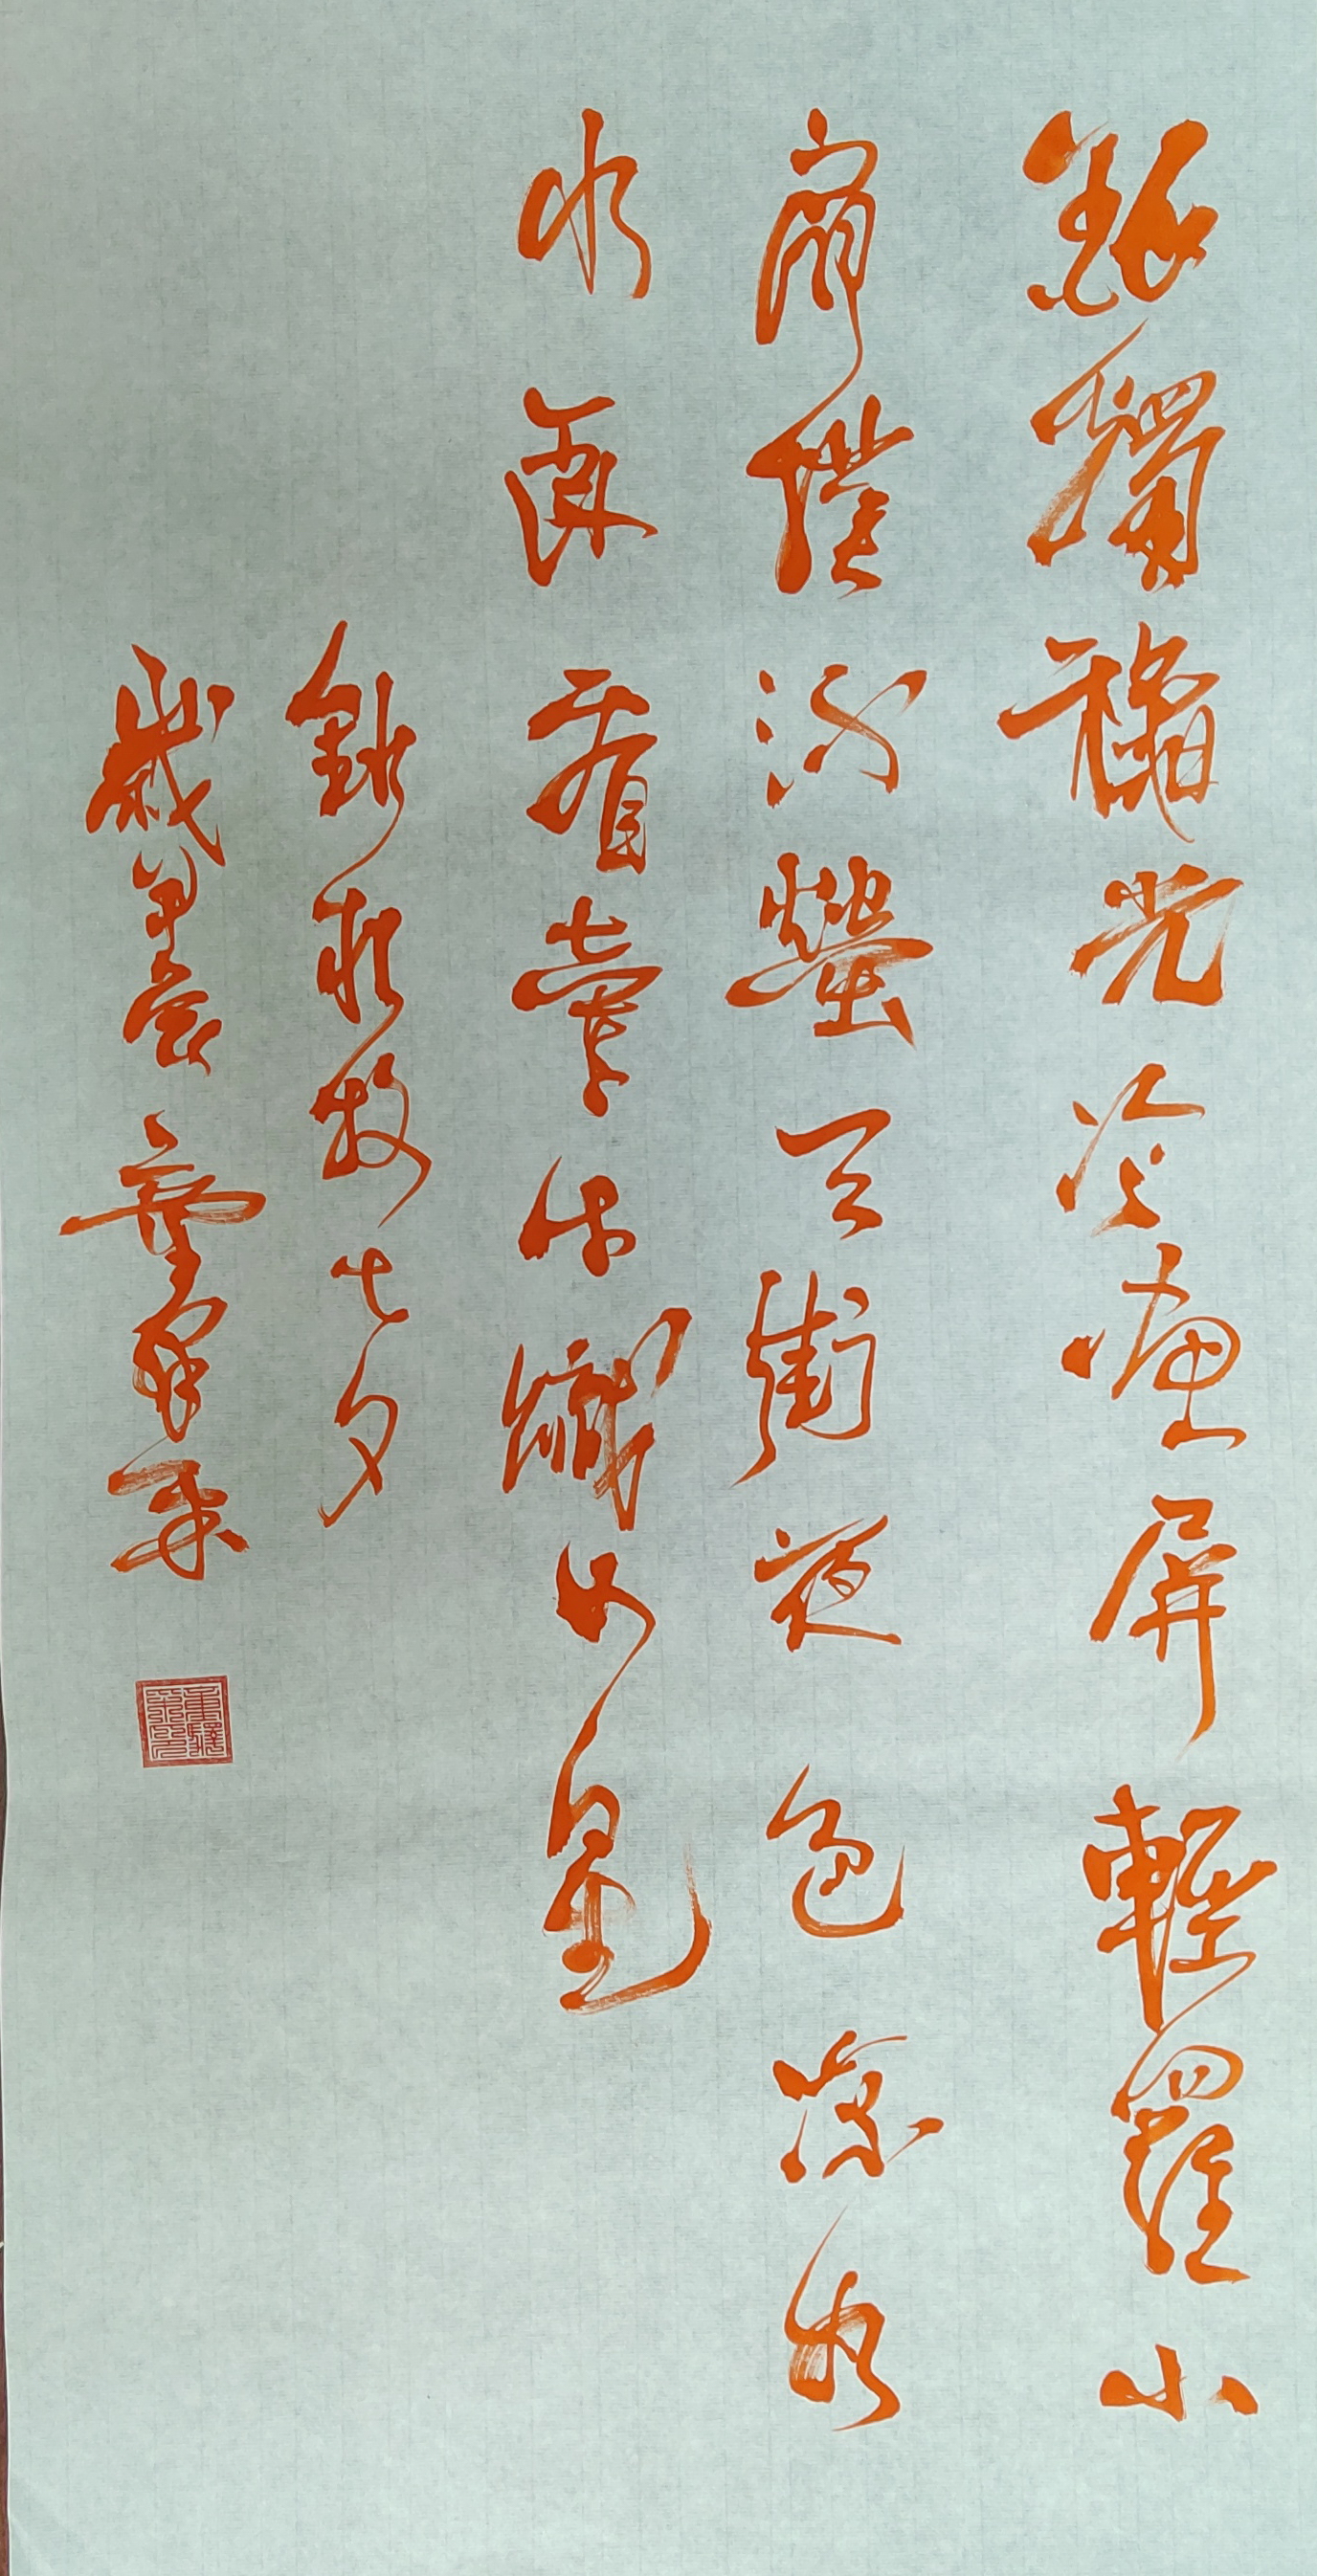 銀燭穐光冷畫屏輕羅小
扇撲流螢天街夜色涼如
水臥看牽牛織女星
錄杜牧七夕
歲甲辰